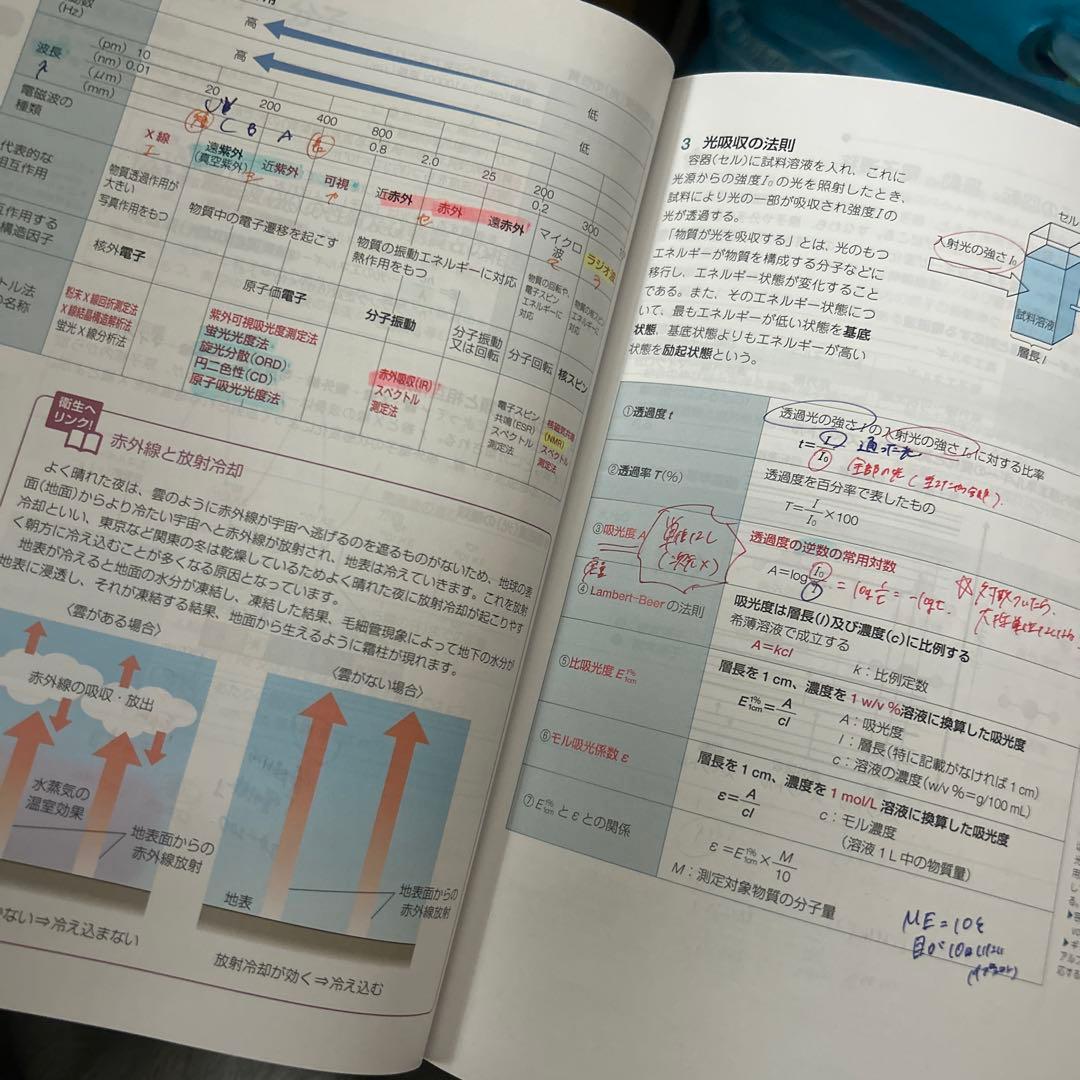 (Hz)
高
低
波長
λ
(pm) 10
(nm) 0.01
(μm)
(mm)
高
低
20
200
400
800
0.8
2.0
25
200
0.2
300
電磁波の
種類
UV
C B A
X線
遠紫外
(真空紫外)
近紫外
可視
近赤外
赤外
遠赤外
マイクロ
波
ラジオ波
代表的な
相互作用
物質透過作用が
大きい
写真作用をもつ
物質中の電子遷移を起こす
物質の振動エネルギーに対応
熱作用をもつ
物質の回転や、
電子スピン
エネルギーに
対応
物質の核スピン
エネルギーに
対応
互作用する
構造因子
核外電子
原子価電子
分子振動
分子振動
又は回転
分子回転
核スピン
トル法
の名称
粉末X線回折測定法
X線結晶構造解析法
蛍光X線分析法
紫外可視吸光度測定法
蛍光光度法
旋光分散(ORD)
円二色性(CD)
原子吸光光度法
赤外吸収(IR)
スペクトル
測定法
電子スピン
共鳴(ESR)
スペクトル
測定法
核磁気共鳴
(NMR)
スペクトル
測定法
衛生へ
リンク!
赤外線と放射冷却
よく晴れた夜は、雲のように赤外線が宇宙へ逃げるのを遮るものがないため、地球の表
面(地面)からより冷たい宇宙へと赤外線が放射され、地表は冷えていきます。これを放射
冷却といい、東京など関東の冬は乾燥しているためよく晴れた夜に放射冷却が起こりやす
く朝方に冷え込むことが多くなる原因となっています。
地表が冷えると地面の水分が凍結し、凍結した結果、毛細管現象によって地下の水分が
地表に浸透し、それが凍結する結果、地面から生えるように霜柱が現れます。
〈雲がある場合〉
〈雲がない場合〉
赤外線の吸収・放出
水蒸気の
温室効果
地表面からの
赤外線放射
地表
地表面からの
赤外線放射
ない⇒冷え込まない
放射冷却が効く⇒冷え込む
3 光吸収の法則
容器(セル)に試料溶液を入れ、これに
光源からの強度I₀の光を照射したとき、
試料により光の一部が吸収され強度Iの
光が透過する。
「物質が光を吸収する」とは、光のもつ
エネルギーが物質を構成する分子などに
移行し、エネルギー状態が変化すること
である。また、そのエネルギー状態につ
いて、最もエネルギーが低い状態を基底
状態、基底状態よりもエネルギーが高い
状態を励起状態という。
セル
入射光の強さI₀
試料溶液
層長 l
①透過度 t
透過光の強さIの入射光の強さI₀に対する比率
t=I/I₀ 通った光
②透過率 T(%)
透過度を百分率で表したもの
T=I/I₀×100
③吸光度 A
単位なし
透過度の逆数の常用対数
A=log I₀/I = log 1/t = -log t.
④Lambert-Beerの法則
吸光度は層長(l)及び濃度(c)に比例する
希薄溶液で成立する
A=kcl
k:比例定数
⑤比吸光度 E1%1cm
層長を1cm、濃度を1 w/v %溶液に換算した吸光度
E1%1cm=A/cl
A:吸光度
l:層長(特に記載がなければ1cm)
c:溶液の濃度(w/v %=g/100 mL)
⑥モル吸光係数 ε
層長を1cm、濃度を1 mol/L 溶液に換算した吸光度
ε=A/cl
c:モル濃度
(溶液1L中の物質量)
⑦E1%1cmとεとの関係
ε=E1%1cm×M/10
M:測定対象物質の分子量
ME=10ε